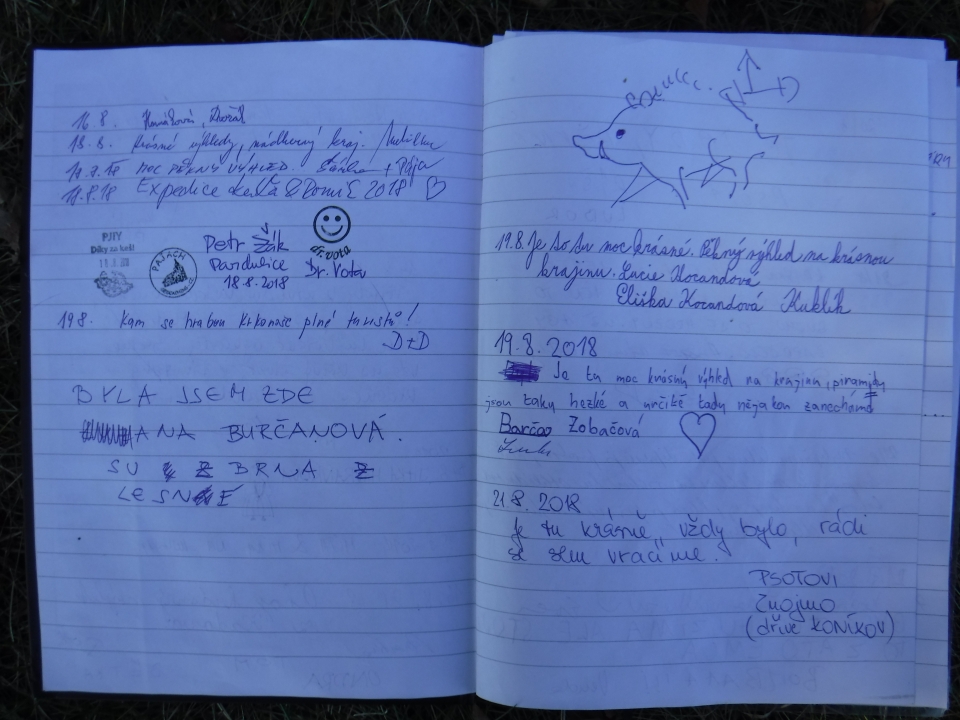 16.8.
18.8. Krásné výhledy, nádherný kraj.
18.8.18 MOC PĚKNÝ VÝHLED + Pája
18.8.18 Expedice 2018
PJIY
Díky za
PAJACH
Petr Žák
Pardubice
18.8.2018
dr.Vota
Dr. Vota
19.8. Kam se hrabou Krkonoše plné turistů!
D+D
BYLA JSEM ZDE
ANA BURČANOVÁ.
SU Z BRNA Z
LESNÉ
19.8. Je to tu moc krásné. Pěkný výhled na krásnou
krajinu. Lucie Kocandová
Eliška Kocandová Kuklík
19.8.2018
Je tu moc krásný výhled na krajinu, piramidy
jsou taky hezké a určitě tady nějakou zanecháme
Barčas Zobačová
21.8.2018
Je tu krásně, vždy bylo, rádi
se sem vracíme.
PSOTOVI
Znojmo
(dříve KONÍKOV)